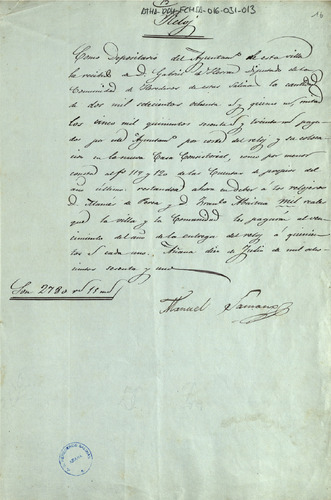 ATHA-DAH-FCHCA-016-031-013
Reloj
Como Depositario del Ayuntam.to de esta villa
he recibido de D. Gabriel de Diputado de la
Comunidad de Herederos de estas Salinas la cantidad
de dos mil setecientos ochenta r.s y quince m.s mitad
de los cinco mil quinientos sesenta y r.s paga
dos por este Ayuntam.to por coste del reloj y su coloca
cion en la nueva Casa Consistorial, como por menor
consta al n.º 119 y 120 de las Cuentas de propios del
año ultimo: restandose ahora en deber a los relojeros
D. Tomás de Perea y D. mil reales
que la villa y la Comunidad les pagarán al ven
cimiento del año de la entrega del reloj á quinien
tos r.s cada uno. Añana dia de Julio de mil ocho
cientos sesenta y uno
Son 2780 r.s 15 m.s
Manuel Samaniego